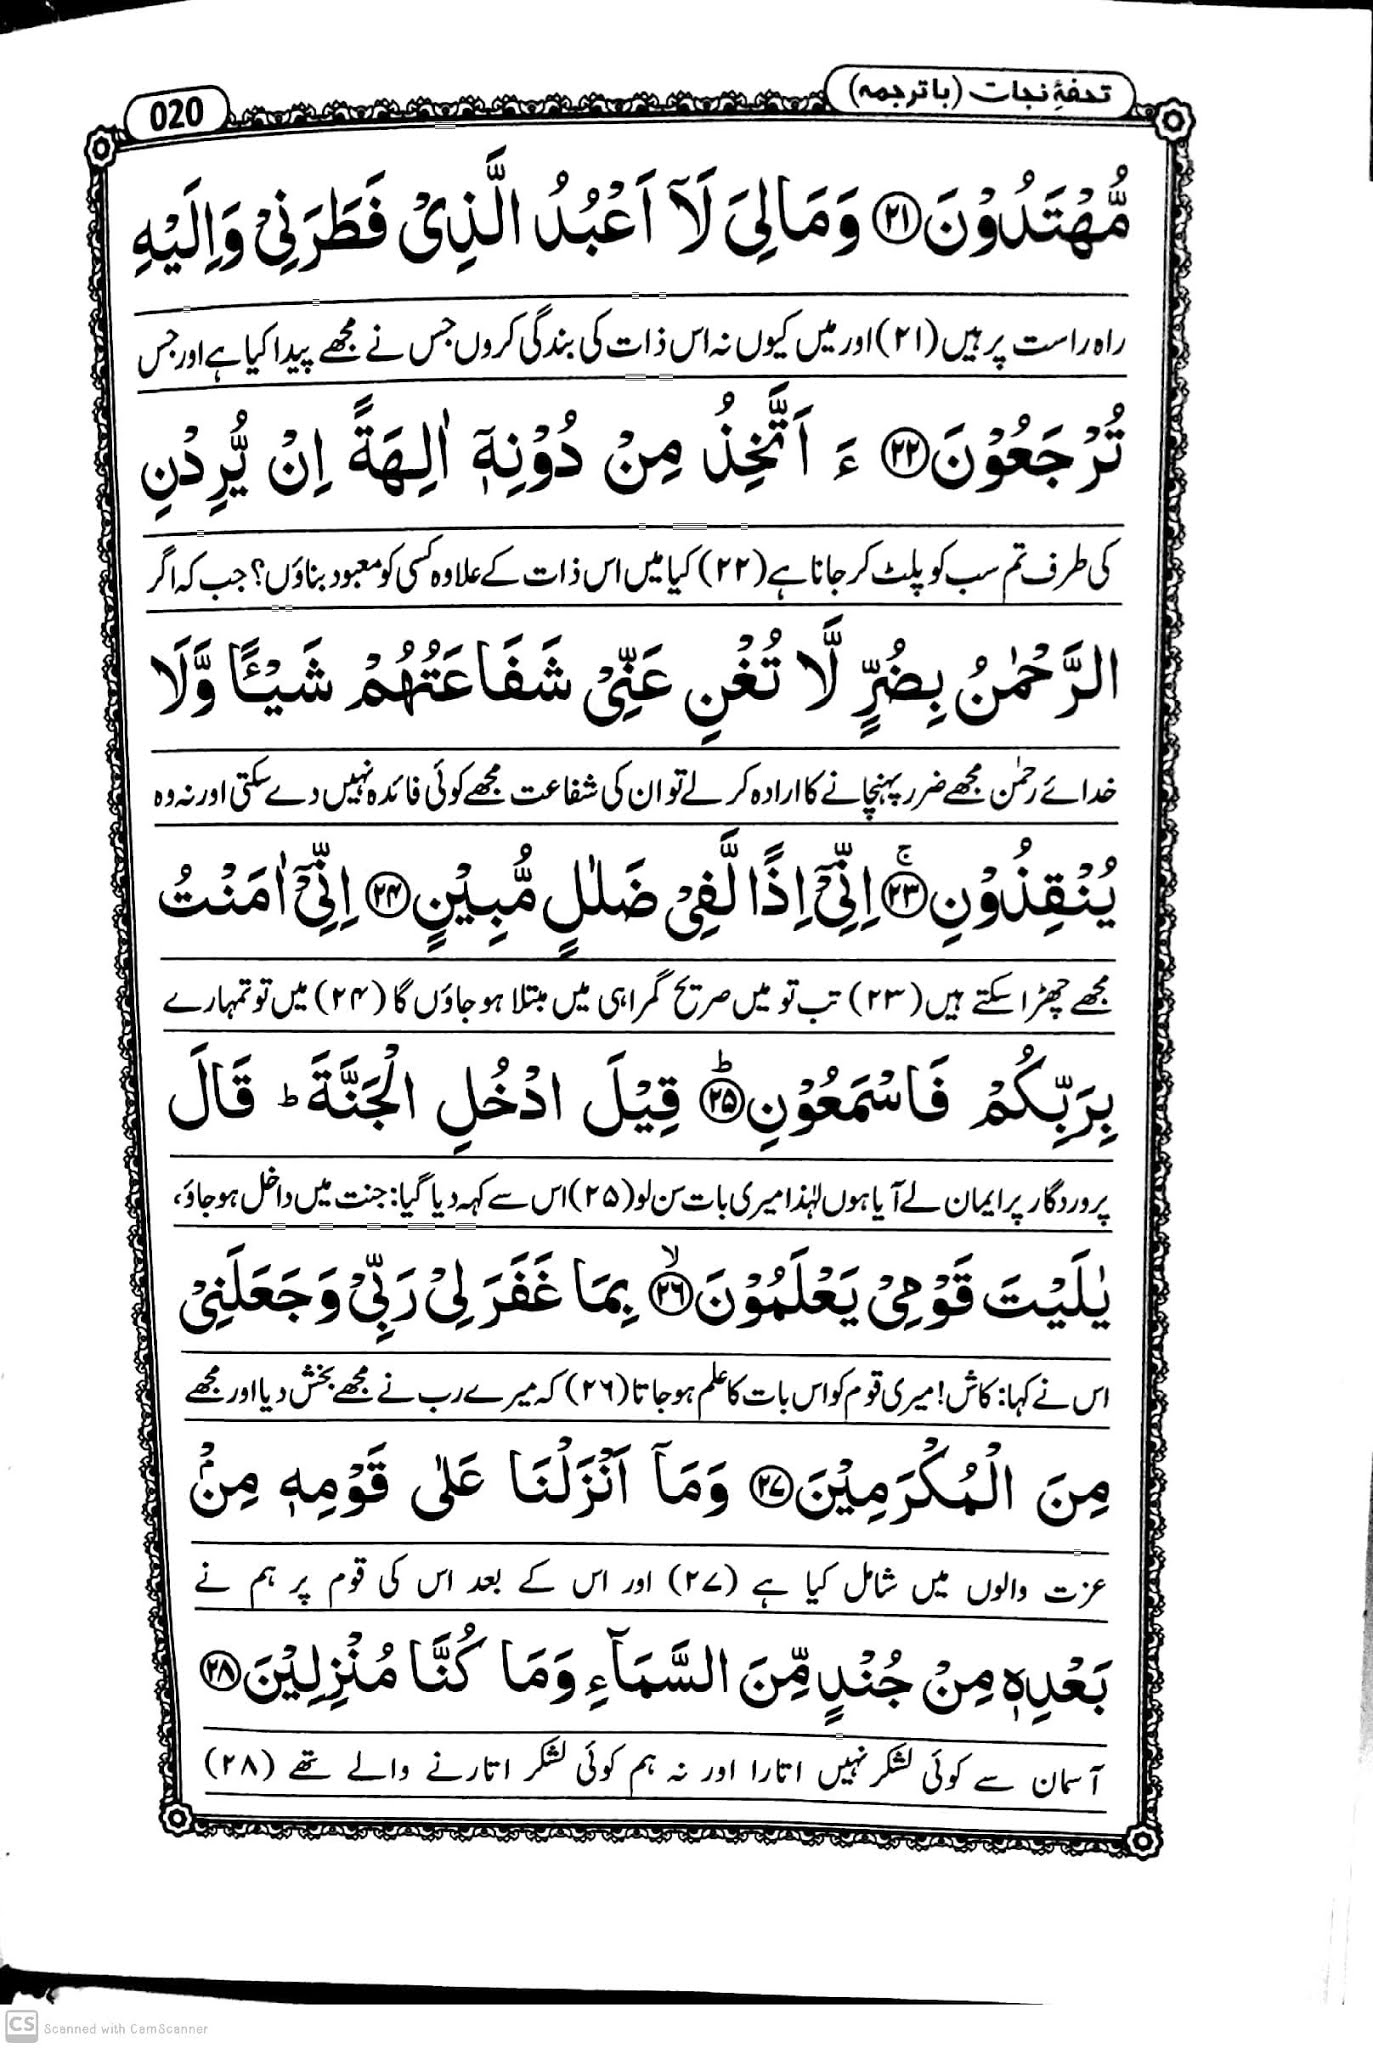 تحفۂ نجات (با ترجمہ)
020
مُّهْتَدُوْنَ ﴿۲۱﴾ وَمَالِیَ لَآ اَعْبُدُ الَّذِیْ فَطَرَنِیْ وَاِلَیْهِ
راہ راست پر ہیں (۲۱) اور میں کیوں نہ اس ذات کی بندگی کروں جس نے مجھے پیدا کیا ہے اور جس
تُرْجَعُوْنَ ﴿۲۲﴾ ءَ اَتَّخِذُ مِنْ دُوْنِهٖۤ اٰلِهَةً اِنْ یُّرِدْنِ
کی طرف تم سب کو پلٹ کر جانا ہے (۲۲) کیا میں اس ذات کے علاوہ کسی کو معبود بناؤں؟ جب کہ اگر
الرَّحْمٰنُ بِضُرٍّ لَّا تُغْنِ عَنِّیْ شَفَاعَتُهُمْ شَیْـًٔا وَّلَا
خدائے رحمٰن مجھے ضرر پہنچانے کا ارادہ کر لے تو ان کی شفاعت مجھے کوئی فائدہ نہیں دے سکتی اور نہ وہ
یُنْقِذُوْنِ ﴿۲۳﴾ۚ اِنِّیْۤ اِذًا لَّفِیْ ضَلٰلٍ مُّبِیْنٍ ﴿۲۴﴾ اِنِّیْۤ اٰمَنْتُ
مجھے چھڑا سکتے ہیں (۲۳) تب تو میں صریح گمراہی میں مبتلا ہو جاؤں گا (۲۴) میں تو تمہارے
بِرَبِّكُمْ فَاسْمَعُوْنِ ﴿۲۵﴾ؕ قِیْلَ ادْخُلِ الْجَنَّةَ ؕ قَالَ
پروردگار پر ایمان لے آیا ہوں لہٰذا میری بات سن لو (۲۵) اس سے کہہ دیا گیا: جنت میں داخل ہو جاؤ،
یٰلَیْتَ قَوْمِیْ یَعْلَمُوْنَ ﴿۲۶﴾ۙ بِمَا غَفَرَ لِیْ رَبِّیْ وَجَعَلَنِیْ
اس نے کہا: کاش! میری قوم کو اس بات کا علم ہو جاتا (۲۶) کہ میرے رب نے مجھے بخش دیا اور مجھے
مِنَ الْمُكْرَمِیْنَ ﴿۲۷﴾ وَمَاۤ اَنْزَلْنَا عَلٰی قَوْمِهٖ مِنْۢ
عزت والوں میں شامل کیا ہے (۲۷) اور اس کے بعد اس کی قوم پر ہم نے
بَعْدِهٖ مِنْ جُنْدٍ مِّنَ السَّمَآءِ وَمَا كُنَّا مُنْزِلِیْنَ ﴿۲۸﴾
آسمان سے کوئی لشکر نہیں اتارا اور نہ ہم کوئی لشکر اتارنے والے تھے (۲۸)
CS Scanned with CamScanner